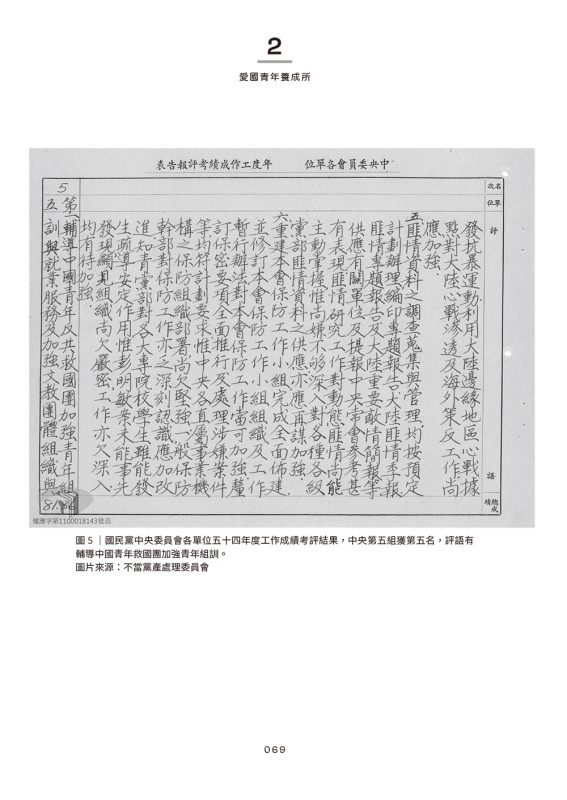 2
愛國青年養成所
中央委員會各單位　年度工作成績考評報告表
名次
單位
評
語
總成績
發抗暴運動利用大陸邊緣地區心戰據
點對大陸心戰滲透及海外策反工作尚
應加強
五、匪情資料之調查蒐集與管理均按預定
計劃辦理編印專題報告大陸匪情季報
匪情專題報告及大陸重要敵情簡報等
供應有關單位及提報中央常會參考甚
有表現匪情研究工作對動態匪情尚能
主動掌握惟尚嫌不夠深入對各種各級
黨部匪情資料之供應亦應再謀加強
六、重建本會保防工作小組完成全面佈建
並修訂本會保防工作小組組織及工作
暫行辦法對本會保防工作當可加強釐
訂保密要項全面推行及處理涉嫌案件
等均符計劃要求惟中央各直屬事業機
構之保防組織部署尚欠堅強一般保防
幹部對保防工作亦乏深刻認識應加改
進知青黨部對各大專院校學生雖能發
生疏導安定作用惟彭明敏案未能事先
發現顯見組織尚欠嚴密工作亦欠深入
均有待加強
5
第五
一、輔導中國青年反共救國團加強青年組
訓與就業服務及加強文教團體組織與
81.56
檔應字第1100018143號函
圖5｜國民黨中央委員會各單位五十四年度工作成績考評結果，中央第五組獲第五名，評語有
輔導中國青年救國團加強青年組訓。
圖片來源：不當黨產處理委員會
069